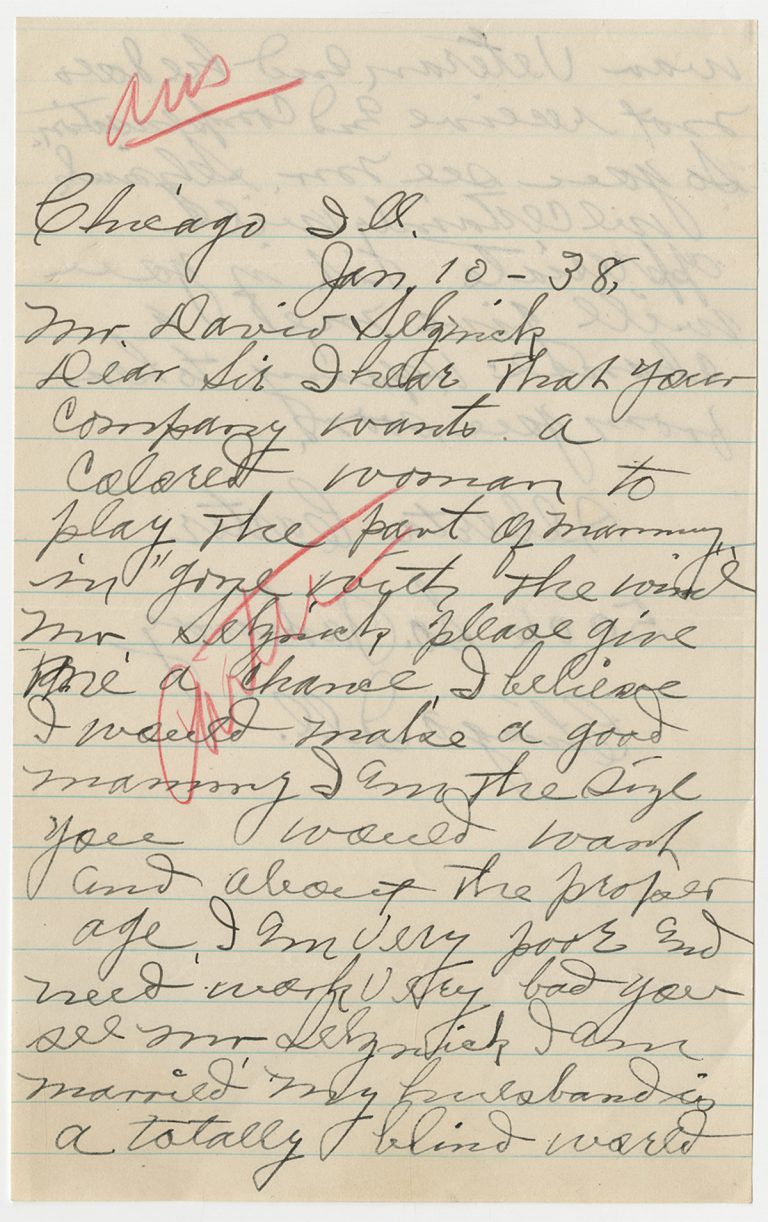 ans
Chicago Ill.
Jan, 10 - 38,
Mr. David Selznick
Dear Sir I hear that your
Company wants a
Colored woman to
play the part of mammy,
in "gone with the wind"
Mr, Selznick please give
me a chance, I believe
I would make a good
mammy I am the size
you would want
and about the proper
age, I am very poor and
need work very bad you
see Mr Selznick, I am
married, my husband is
a totally blind world